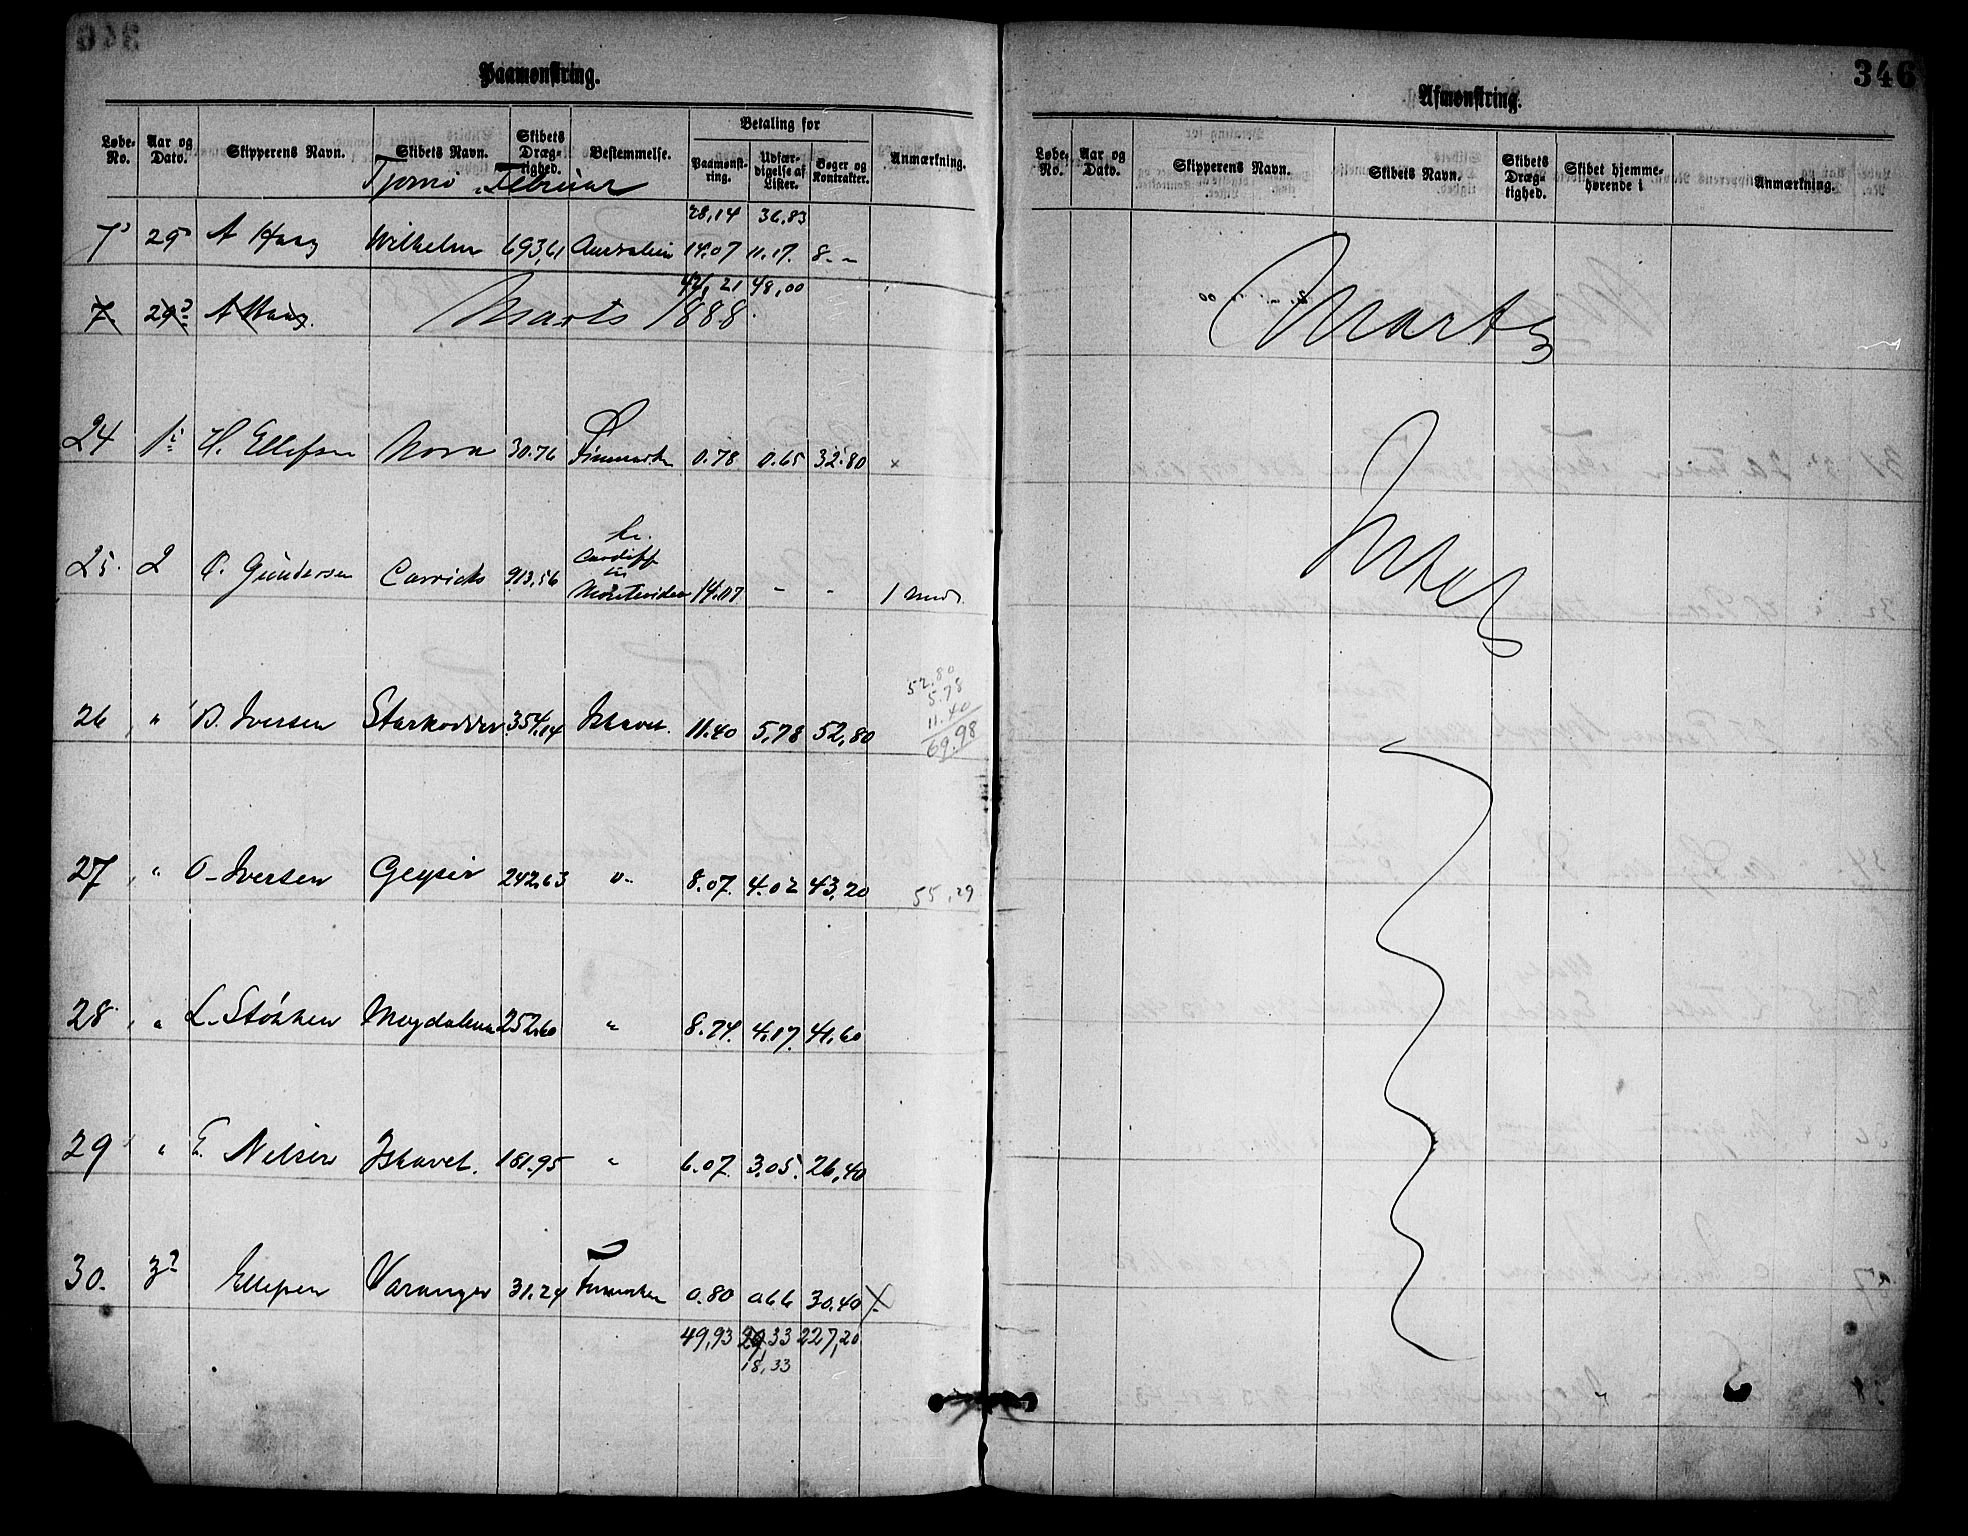 Paamønstring.
Løbe-No. Aar og Dato. Skipperens Navn. Skibets Navn. Skibets Dræg-tighed. Bestemmelse. Betaling for Paamønst-ring. Udfær-digelse af Lister. Bøger og Kontrakter. Anmærkning.
Tjømø Februar
28,14 36,83
7 25 A Haag Wilhelm 693,61 Australien 14.07 11.17. 8.-
42,21 48,00
7. 29 A Haag. Marts 1888.
24 1 H. Ellefsen Nora 30.76 Finmarken 0.78 0.65 32.80 x
25. 2 O. Gundersen Carricks 913,56 Cardiff til Montevideo 14.07 - - 1 Md.
52.80
5.78
11.40
69.98
26 " B. Iversen Starkodder 354,14 Ishavet. 11.40 5,78 52,80
27 " O. Iversen Geysir 242.63 " 8.07. 4.02 43,20 55,29
28 " L. Støkken Magdalena 252.60 " 8.74. 4.17. 41,60
29 " E. Nilsen Ishavet. 181.95 " 6.07. 3,05. 26,40
30. 3 Ellefsen Varanger 31.24 Finmarken 0.80 0.66 30.40 X
49,93 29,33 227,20
18,33
346
Afmønstring.
Løbe-No. Aar og Dato. Skipperens Navn. Skibets Navn. Skibets Dræg-tighed. Skibet hjemme-hørende i Anmærkning.
Marts
Intet